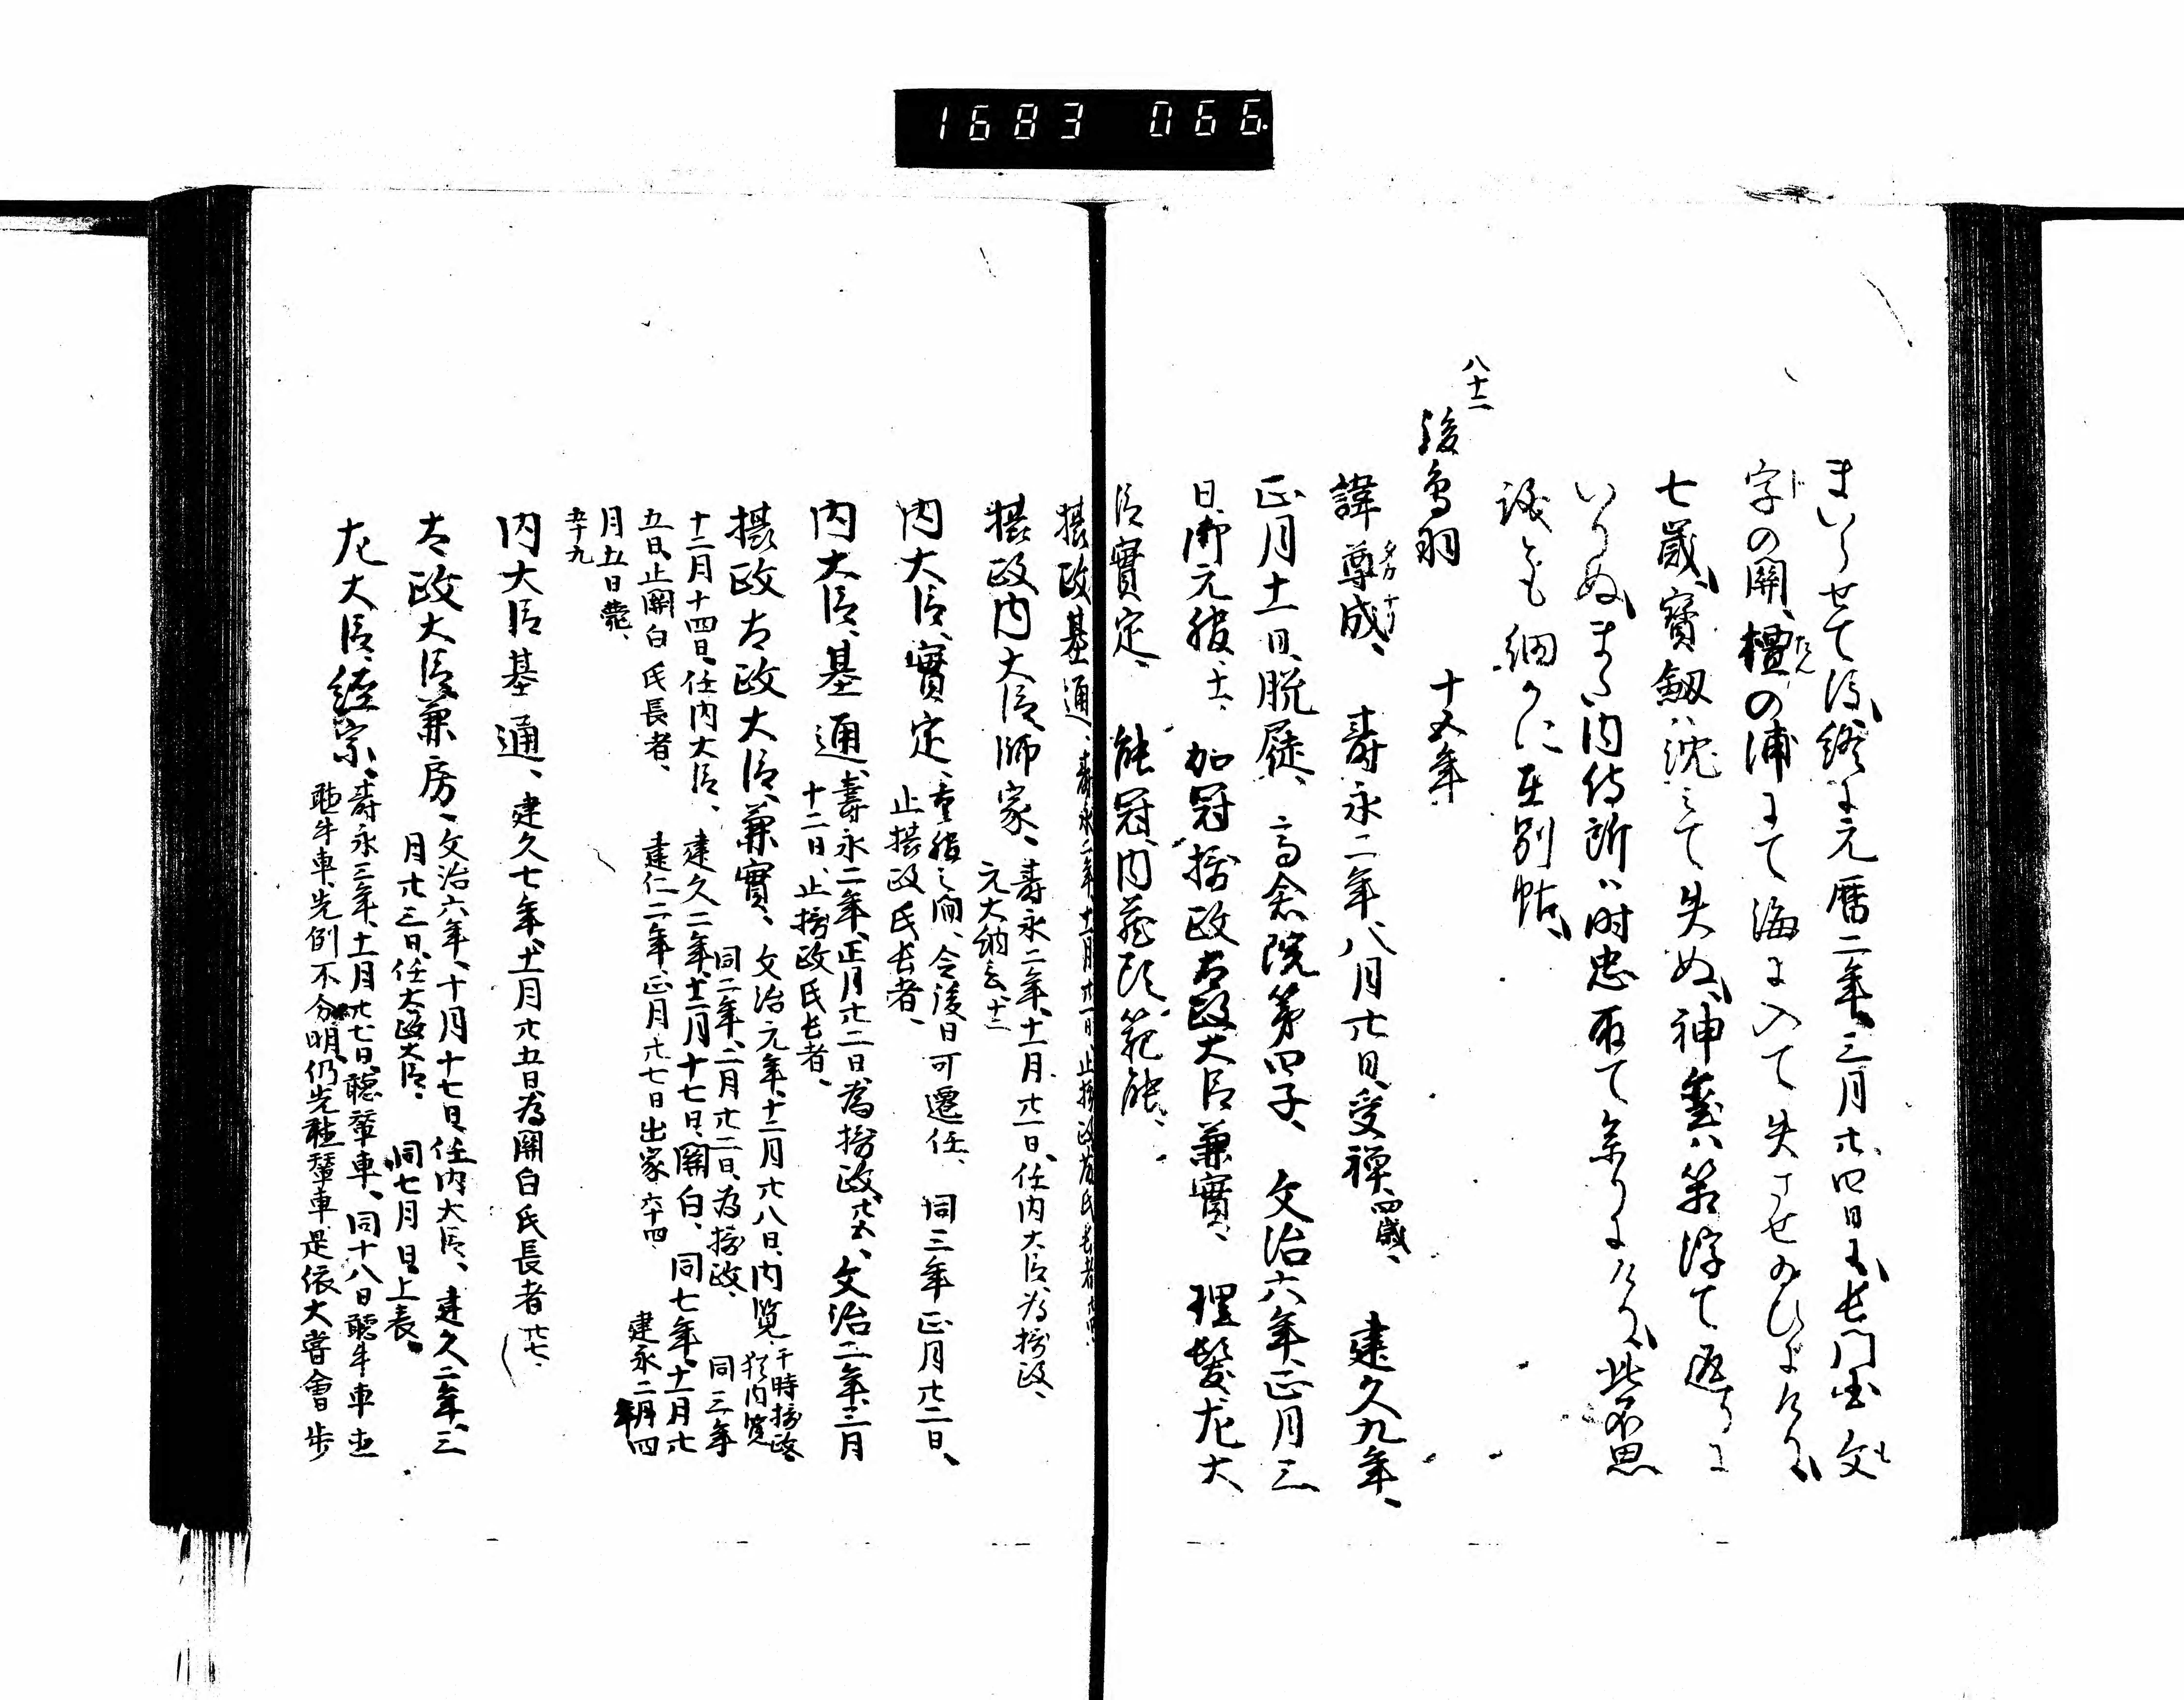 1683 066.
まいらせて後、終ニ元暦二年、三月廿四日ニ、長門国文
字の關、檀の浦にて海ニ入て失させ給ひにけり、
七歳、寳釼ハ沈ミて失ぬ、神璽ハ筥浮て返り
いりぬ、また内侍所ハ時忠取て参りにけり、此不思
議とも細かに在別帖、
八十二
後鳥羽　十五年
諱尊成、壽永二年、八月廿日、受禅、四歳、建久九年、
正月十一日、脱屣、高倉院第四子、文治六年、正月三
日、御元服、十一、加冠摂政太政大臣兼實、理髪左大
臣實定、能冠、内蔵頭範能、
摂政基通、壽永二年、十一月廿一日、止摂政并氏長者
摂政内大臣師家、壽永二年、十一月廿一日、任内大臣、為摂政、
元大納言、十二
内大臣實定、重服之間、令後日可還任、同三年正月廿二日、
止摂政氏長者、
内大臣基通、壽永二年、正月廿二日、為摂政、廿五、文治二年、三月
十二日、止摂政氏長者、
摂政太政大臣、兼實、文治元年、十二月廿八日、内覧、于時摂政
猶内覧
同二年、三月廿二日、為摂政、同三年
十二月十四日、任内大臣、建久二年、十二月十七日、關白、同七年、十一月廿
五日、止關白氏長者、建仁二年、正月廿七日出家、建永二年四
月五日薨、
五十九
内大臣基通、建久七年、十一月廿五日、為關白氏長者、廿七、
太政大臣兼房、文治六年、十月十七日、任内大臣、建久二年、三
月廿三日、任太政大臣、同七月日上表、
左大臣、経宗、壽永三年、十一月廿七日、聴輦車、同十八日聴牛車
聴牛車、先例不分明、仍先聴輦車、是依大嘗會歩